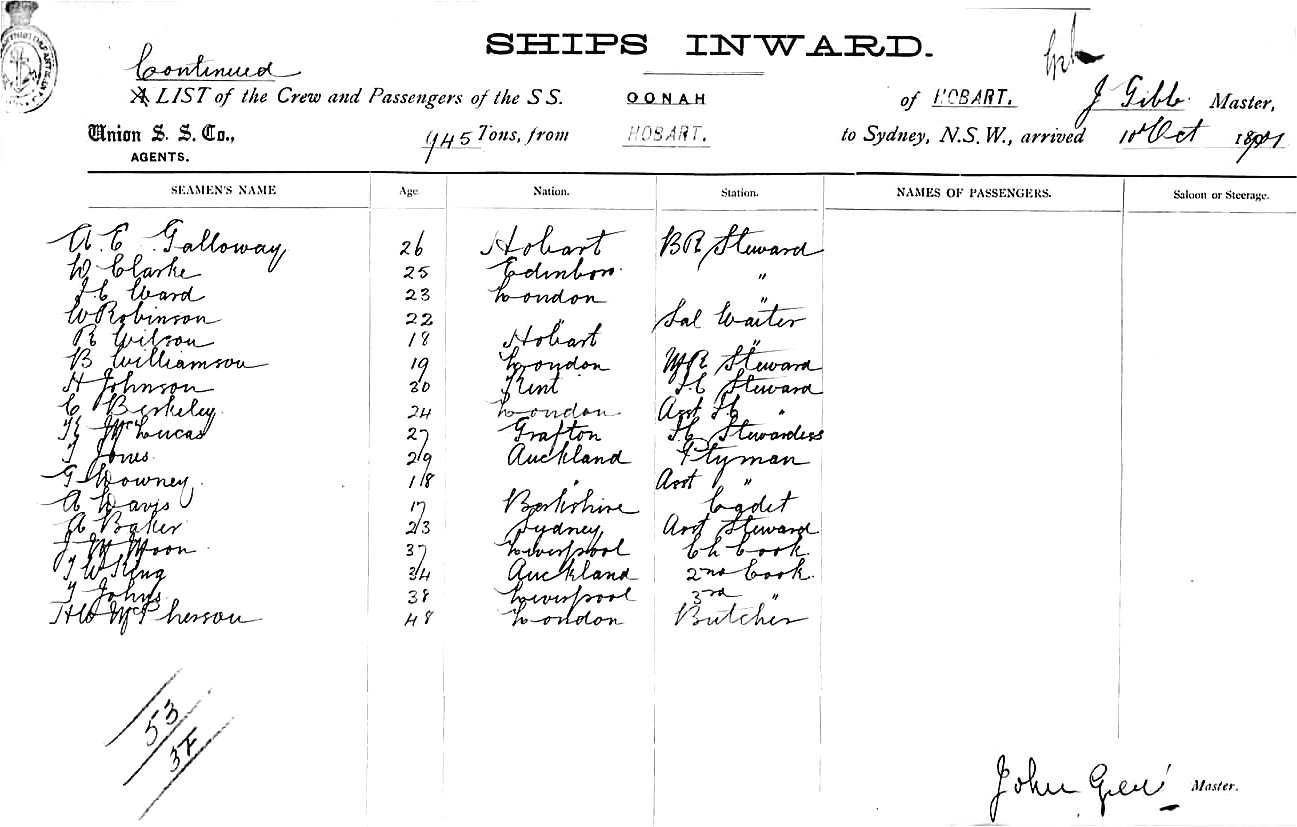 SHIPS INWARD.
Continued
A LIST of the Crew and Passengers of the S S. OONAH of HOBART. J Gibb. Master,
Union S. S. Co., 945 Tons, from HOBART. to Sydney, N.S.W., arrived 10 Oct 1901
AGENTS.
SEAMEN'S NAME Age. Nation. Station. NAMES OF PASSENGERS. Saloon or Steerage.
A. E. Galloway 26 Hobart BR Steward
W Clarke 25 Edinboro. "
J C Ward 23 London "
W Robinson 22 " Sal Waiter
R Wilson 18 Hobart "
B Williamson 19 London MR Steward
H Johnson 30 Kent F.C Steward
C Berkeley. 24 London Asst FC "
McLucas 27 Grafton FC Stewardess
T Jones. 29 Auckland Ptyman
G Downey. 18 " Asst "
A Davis 17 Berkshire Cadet
A Baker 23 Sydney Asst Steward
J M Moon 37 Liverpool Ch Cook.
T W King 34 Auckland 2nd Cook.
T Johns 38 Liverpool 3rd "
HW McPherson 48 London Butcher
53
3F
John Gibb Master.